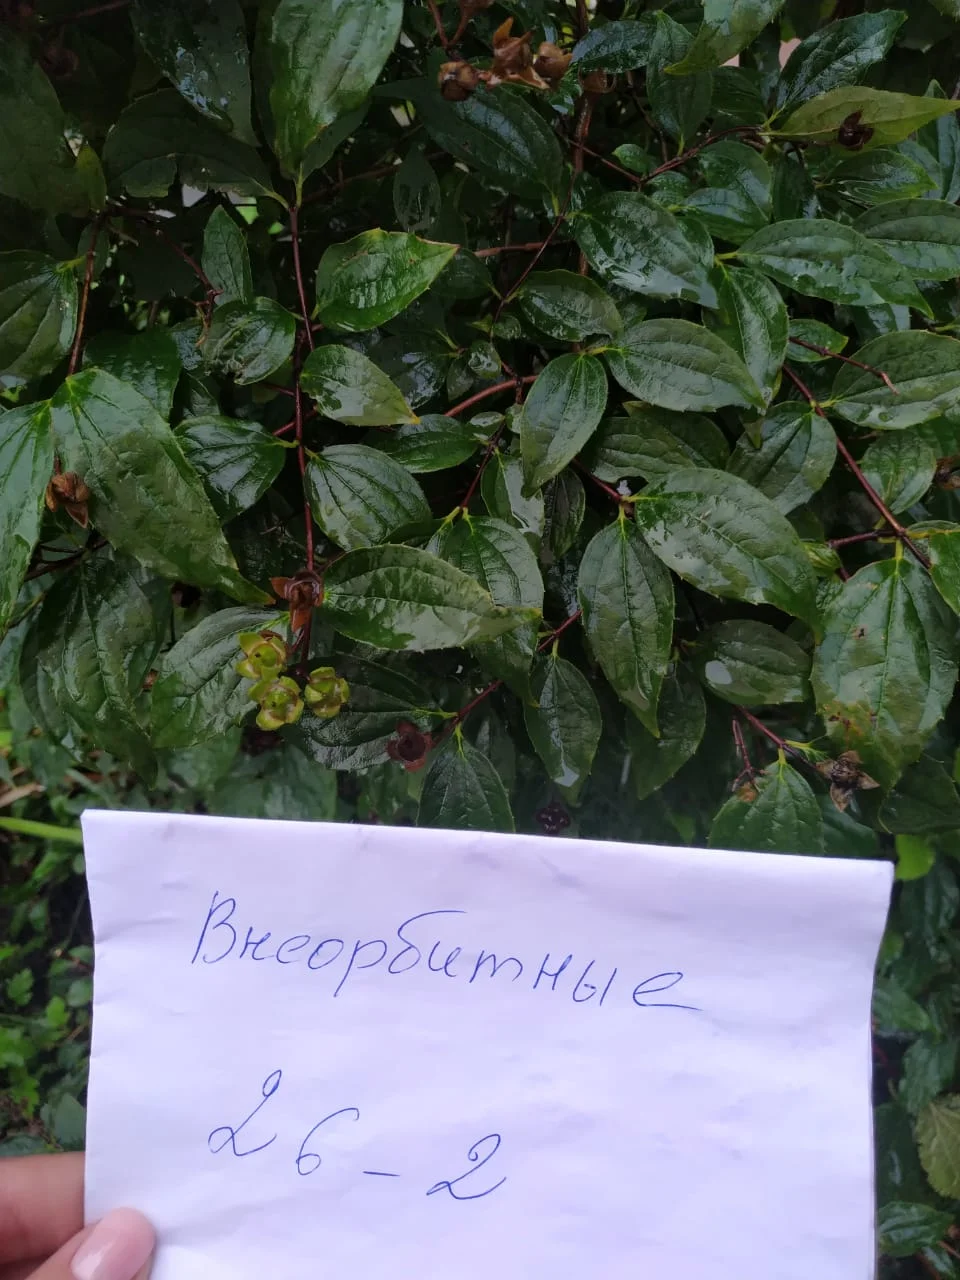 Внеорбитные
26-2